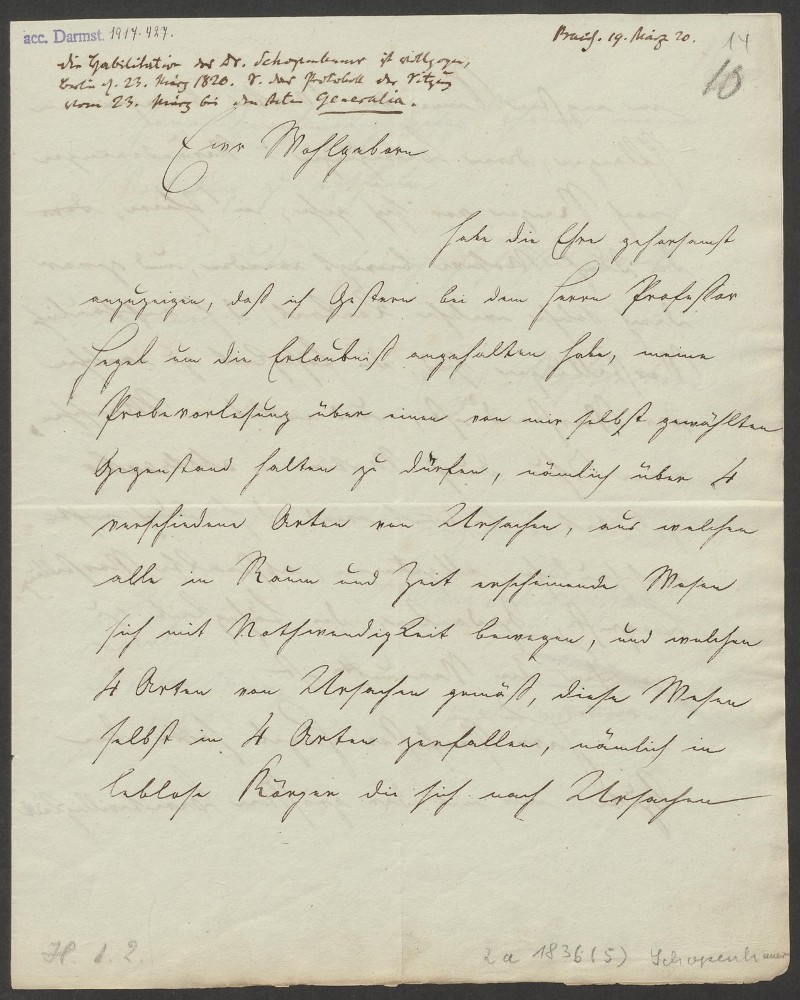 acc. Darmst. 1917.427.
Präs. 19. März 20.
14
10
die Habilitation des Dr. Schopenhauer ist vollzogen,
Berlin d. 23. März 1820. V. das Protokoll der Sitzung
vom 23. März bei den Acten Generalia.
Ewr Wohlgeborn
habe die Ehre gehorsamst
anzuzeigen, daß ich Gestern bei dem Herrn Professor
Hegel um die Erlaubniß angehalten habe, meine
Probevorlesung über einen von mir selbst gewählten
Gegenstand halten zu dürfen, nämlich über 4
verschiedene Arten von Ursachen, aus welchen
alle in Raum und Zeit erscheinende Wesen
sich mit Nothwendigkeit bewegen, und welchen
4 Arten von Ursachen gemäß, diese Wesen
selbst in 4 Arten zerfallen, nämlich in
leblose Körper die sich nach Ursachen
H. 1.2.
2 a 1836 (5) Schopenhauer